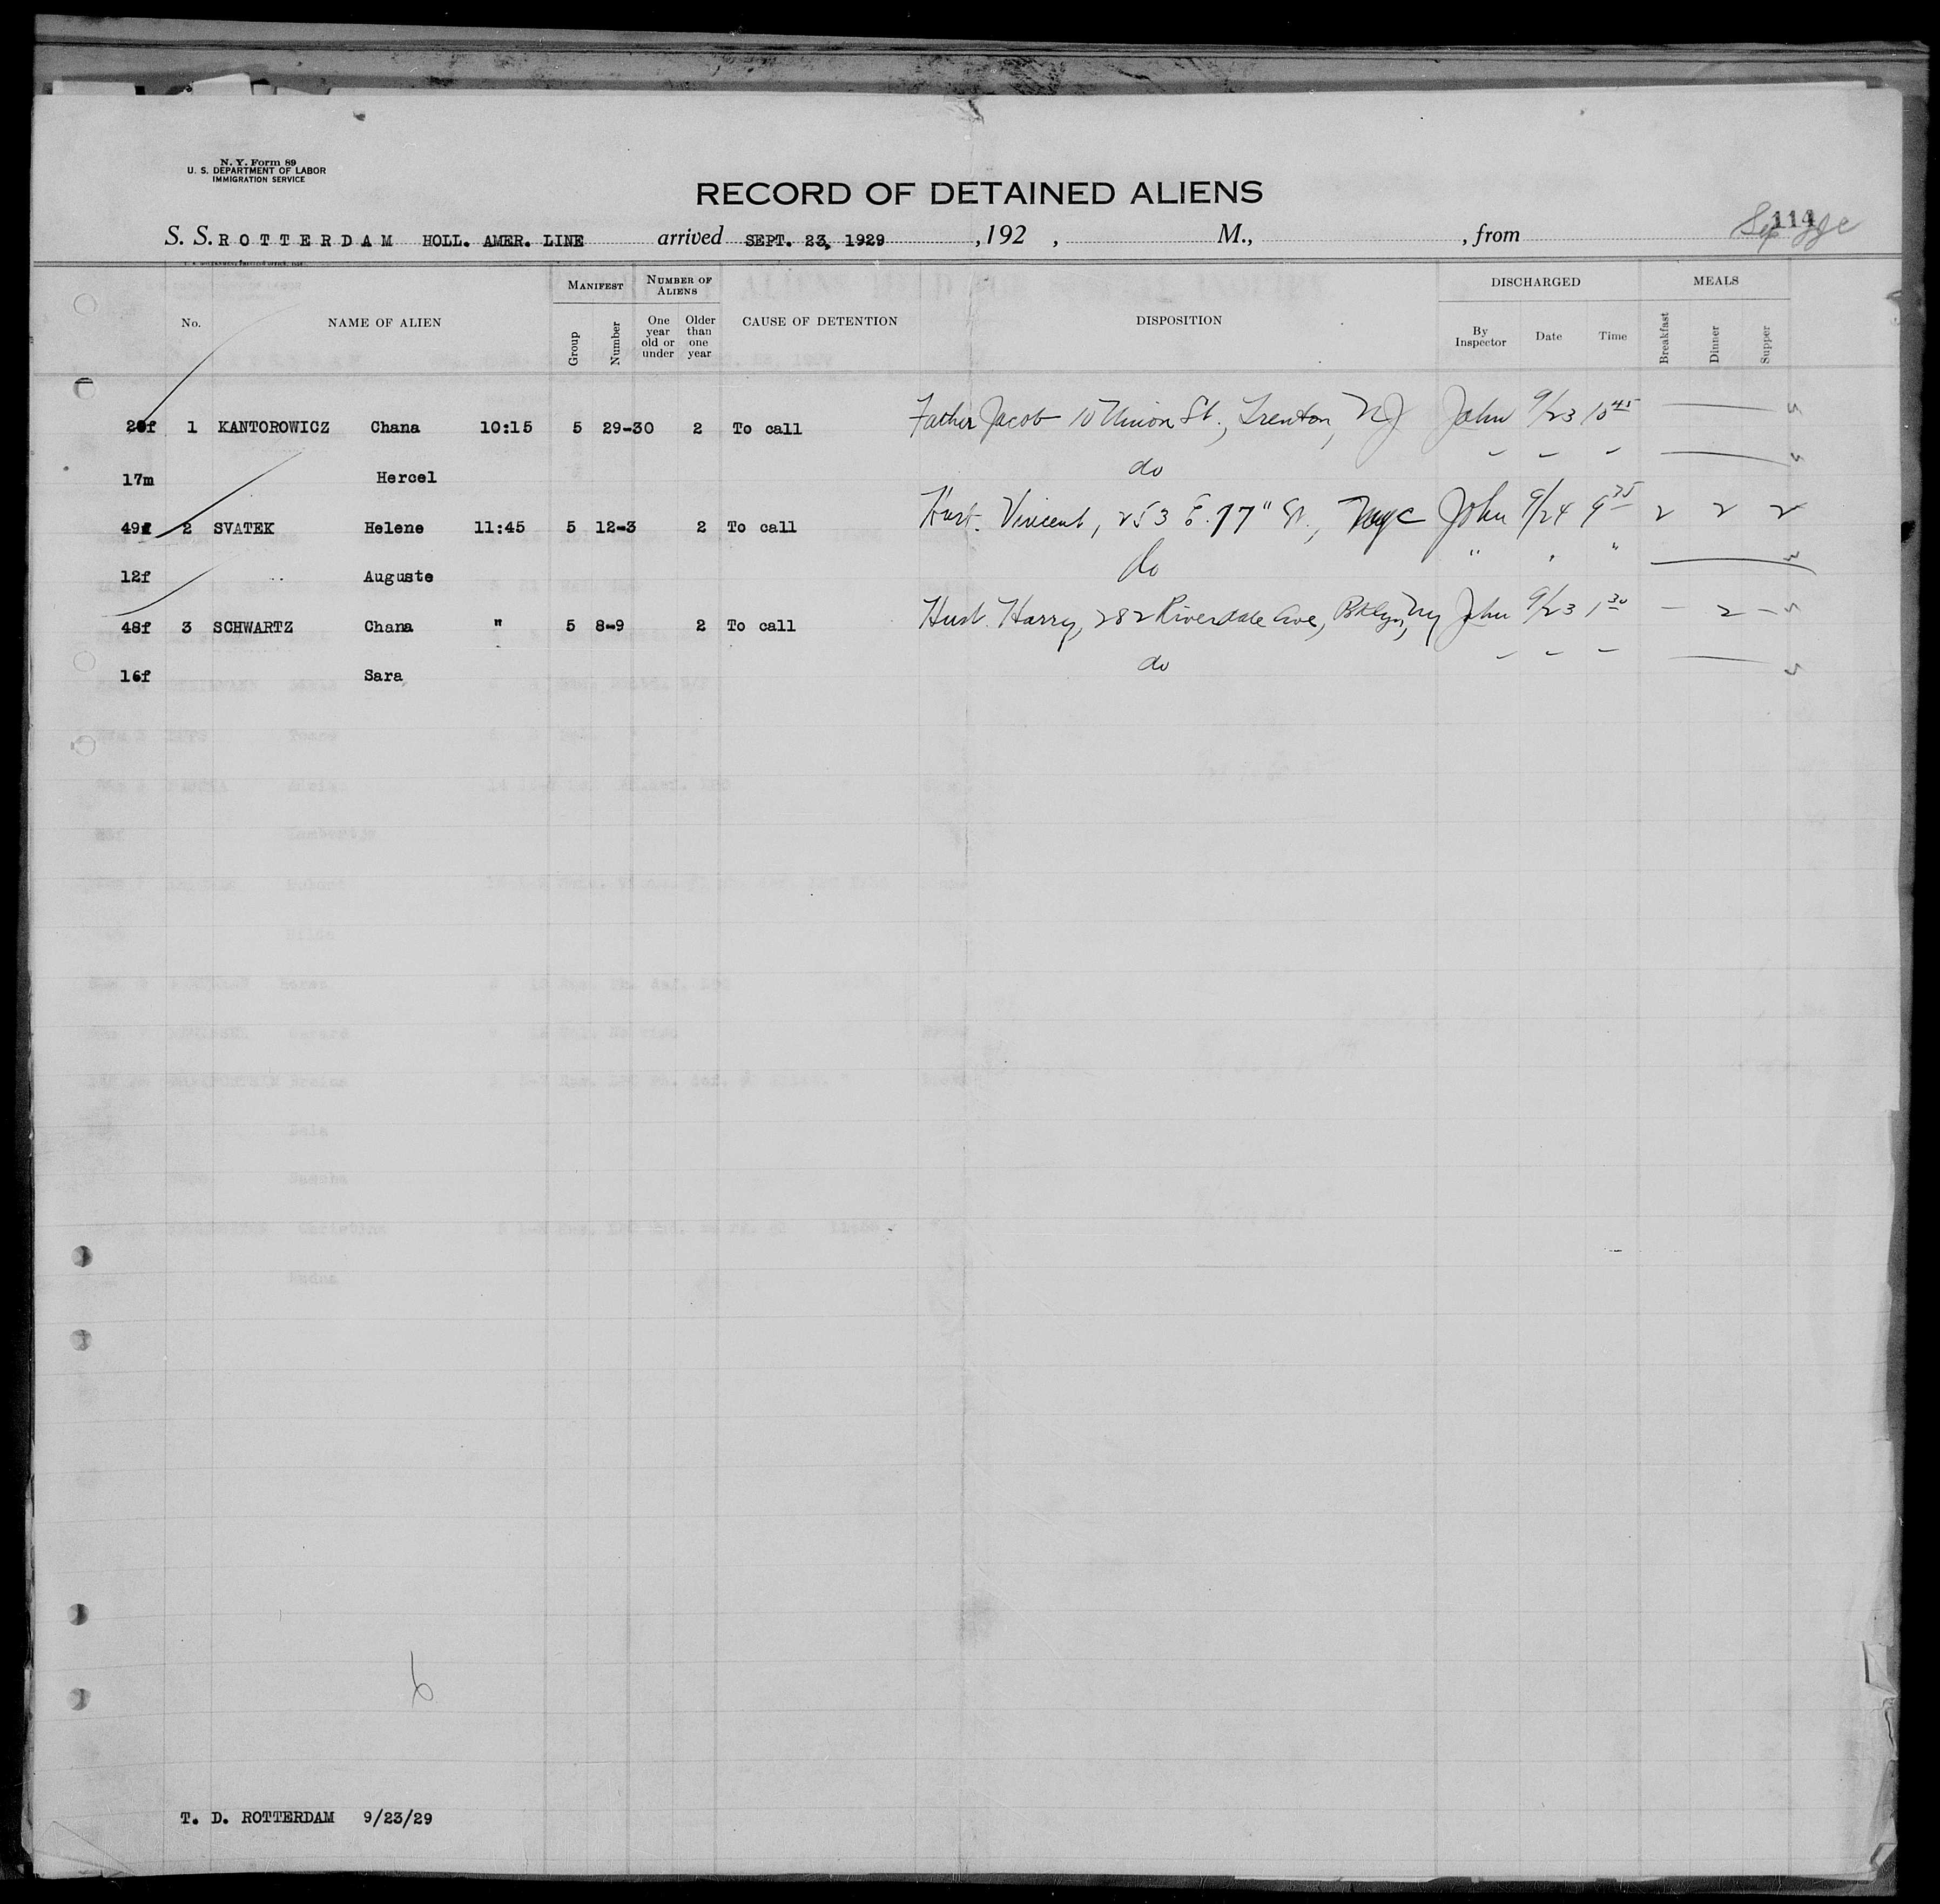 N. Y. Form 89
U. S. DEPARTMENT OF LABOR
IMMIGRATION SERVICE
RECORD OF DETAINED ALIENS
114
S. S. ROTTERDAM HOLL. AMER. LINE arrived SEPT. 23, 1929 , 192 , M., , from
No. NAME OF ALIEN MANIFEST Group Number NUMBER OF ALIENS One year old or under Older than one year CAUSE OF DETENTION DISPOSITION DISCHARGED By Inspector Date Time MEALS Breakfast Dinner Supper
1 KANTOROWICZ Chana 10:15 5 29-30 2 To call Father Jacob 10 Union St., Trenton, NJ John 9/23 10 45
17m Hercel do
49f 2 SVATEK Helene 11:45 5 12-3 2 To call Husb. Vincent, 253 E. 77" St., NYC John 9/24 9 35 2 2 2
12f Auguste do " " "
48f 3 SCHWARTZ Chana " 5 8-9 2 To call Husb. Harry, 282 Riverdale Ave, Bklyn, NY John 9/23 1 30 — 2 —
16f Sara do
6
T. D. ROTTERDAM 9/23/29